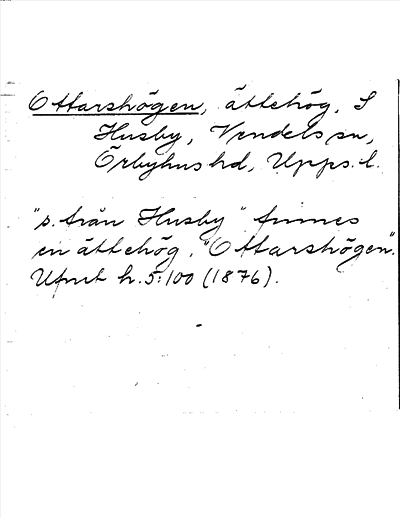 Ottarshögen, ättehög, S
Husby, Vendels sn,
Örbyhus hd, Upps. l.
"s. från Husby" finnes
en ättehög, "Ottarshögen".
Ufmt h. 5:100 (1876).